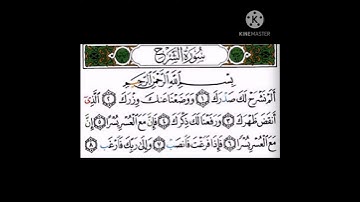 KINEMASTER
سُورَةُ الشَّرْحِ
بِسْمِ اللَّهِ الرَّحْمَٰنِ الرَّحِيمِ
أَلَمْ نَشْرَحْ لَكَ صَدْرَكَ ١ وَوَضَعْنَا عَنكَ وِزْرَكَ ٢ الَّذِي
أَنقَضَ ظَهْرَكَ ٣ وَرَفَعْنَا لَكَ ذِكْرَكَ ٤ فَإِنَّ مَعَ الْعُسْرِ يُسْرًا ٥ إِنَّ
مَعَ الْعُسْرِ يُسْرًا ٦ فَإِذَا فَرَغْتَ فَانصَبْ ٧ وَإِلَىٰ رَبِّكَ فَارْغَب ٨